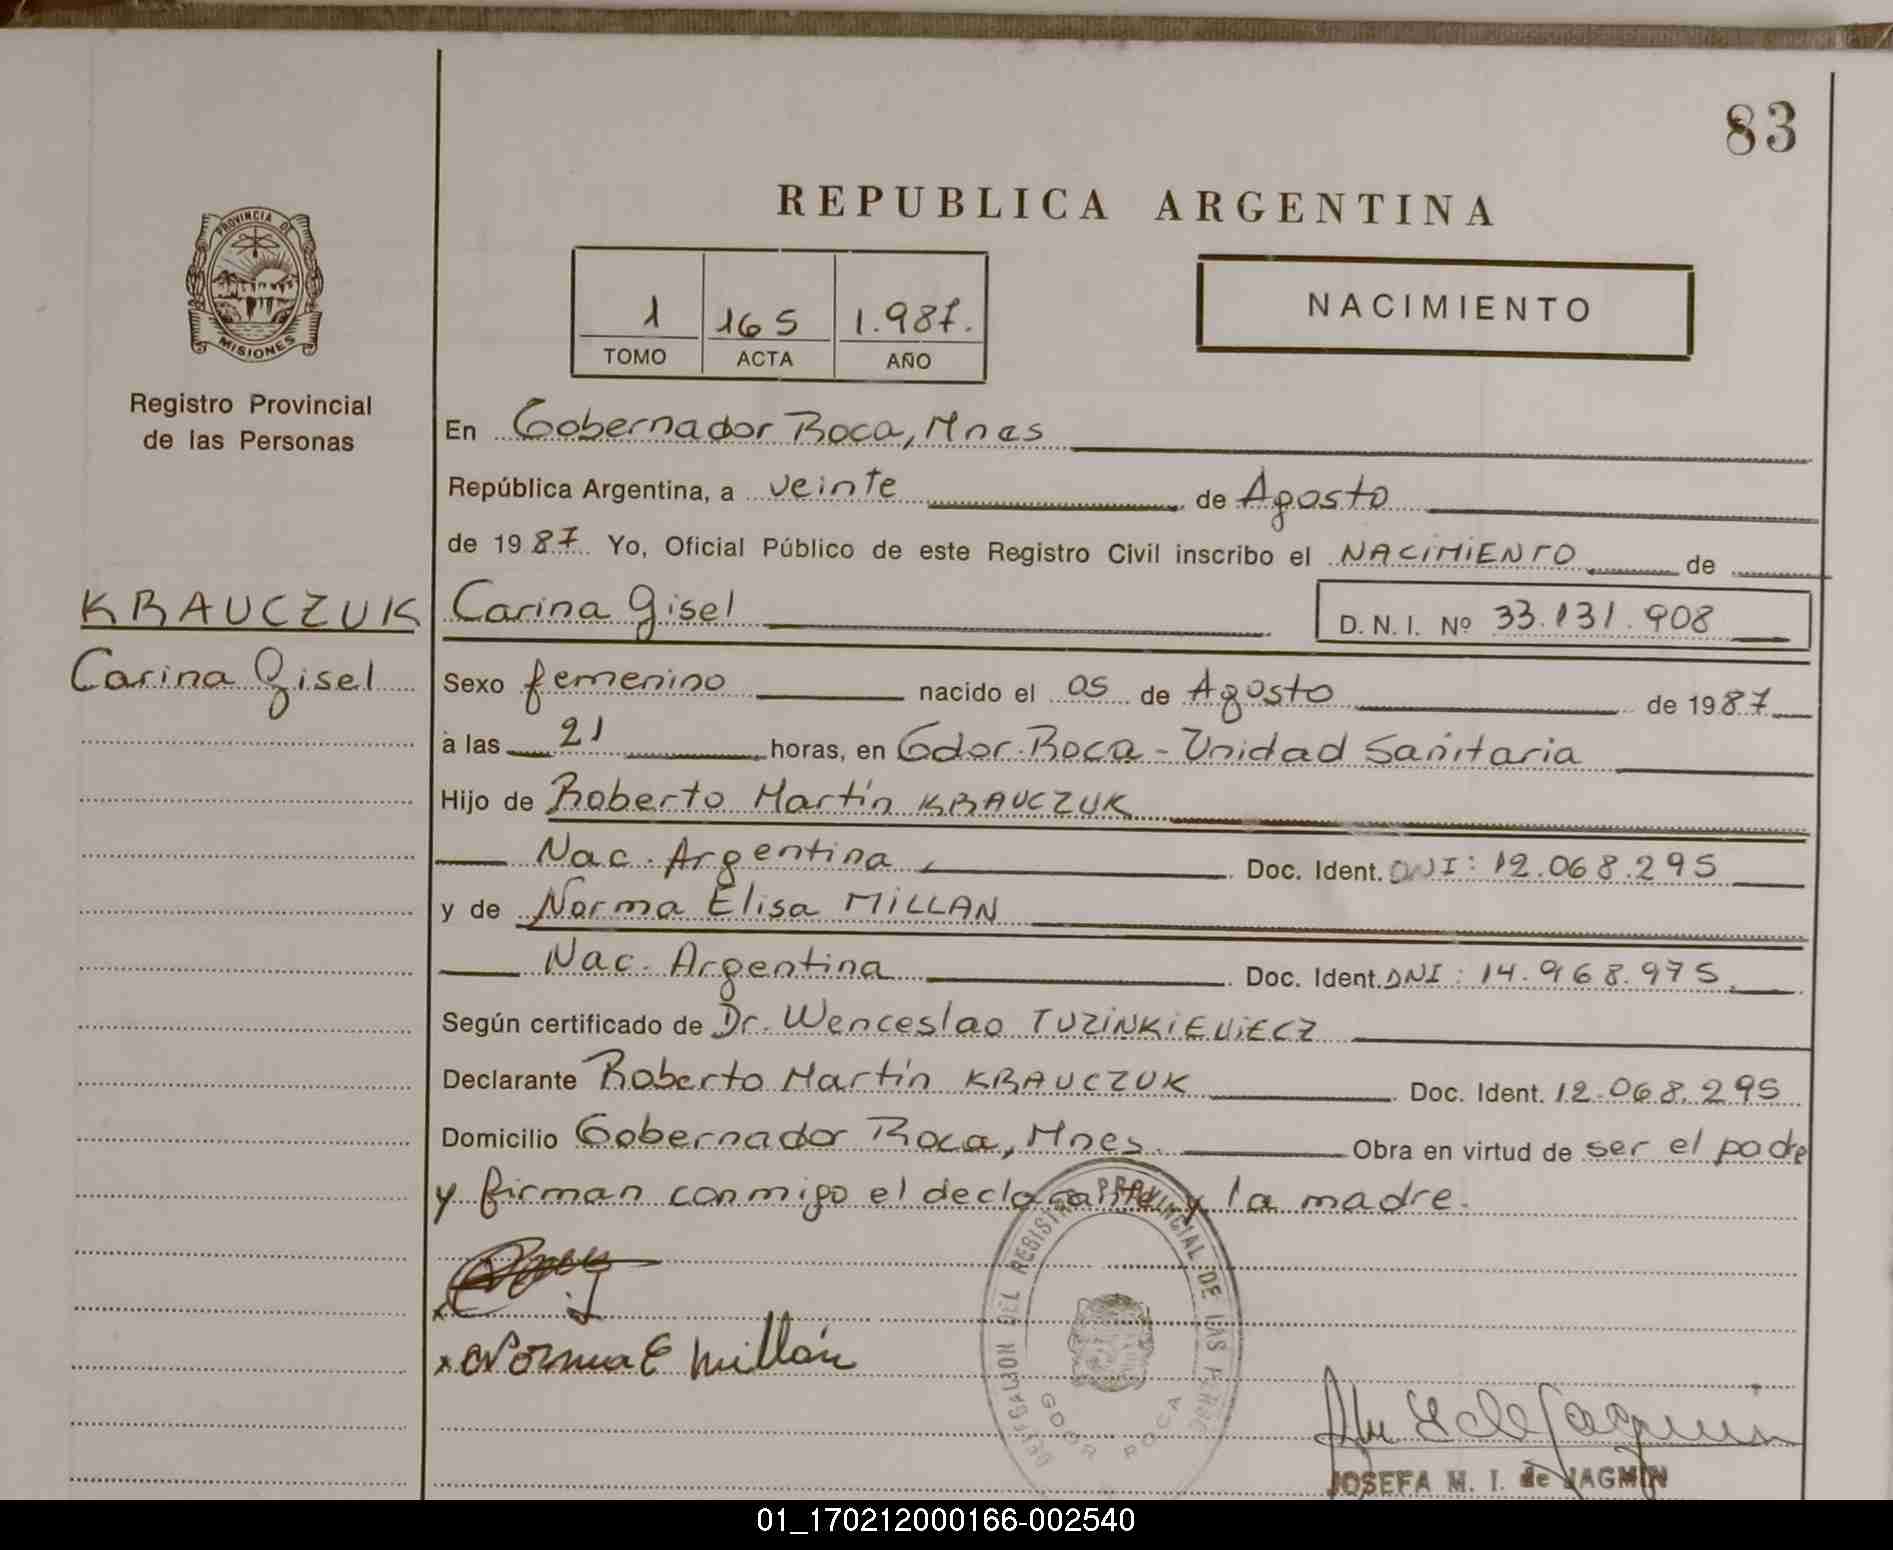 83
REPUBLICA ARGENTINA
PROVINCIA DE
MISIONES
Registro Provincial
de las Personas
1 165 1.987.
TOMO ACTA AÑO
NACIMIENTO
En Gobernador Roca, Mnes
República Argentina, a veinte de Agosto
de 1987 Yo, Oficial Público de este Registro Civil inscribo el NACIMIENTO de
KRAUCZUK
Carina Gisel
Carina Gisel D.N.I. Nº 33.131.908
Sexo femenino nacido el 05 de Agosto de 1987
a las 21 horas, en Gdor. Roca - Unidad Sanitaria
Hijo de Roberto Martín KRAUCZUK
Nac. Argentina, Doc. Ident. DNI: 12.068.295
y de Norma Elisa MILLAN
Nac. Argentina Doc. Ident. DNI: 14.968.975
Según certificado de Dr. Wenceslao TUZINKIEVIECZ
Declarante Roberto Martín KRAUCZUK Doc. Ident. 12.068.295
Domicilio Gobernador Roca, Mnes. Obra en virtud de ser el padre
y firman conmigo el declarante y la madre.
x
x Norma E Millán
DELEGACION DEL REGISTRO PROVINCIAL DE LAS
GDOR ROCA
JOSEFA M. I. de JAGMIN
01_170212000166-002540